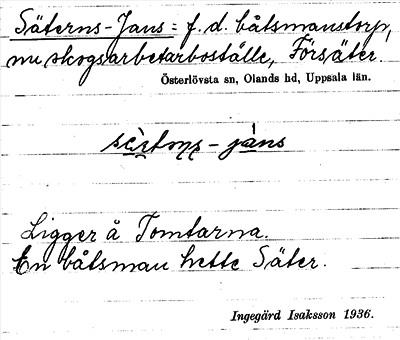 Säterns-Jans = f. d. båtsmanstorp,
nu skogsarbetarboställe, Försäter.
Österlövsta sn, Olands hd, Uppsala län.
Ligger å Tomtarna.
En båtsman hette Säter.
Ingegärd Isaksson 1936.